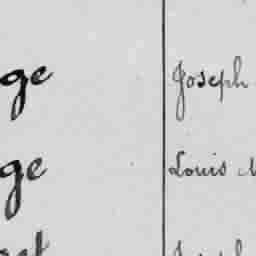 ge Joseph
ge Louis